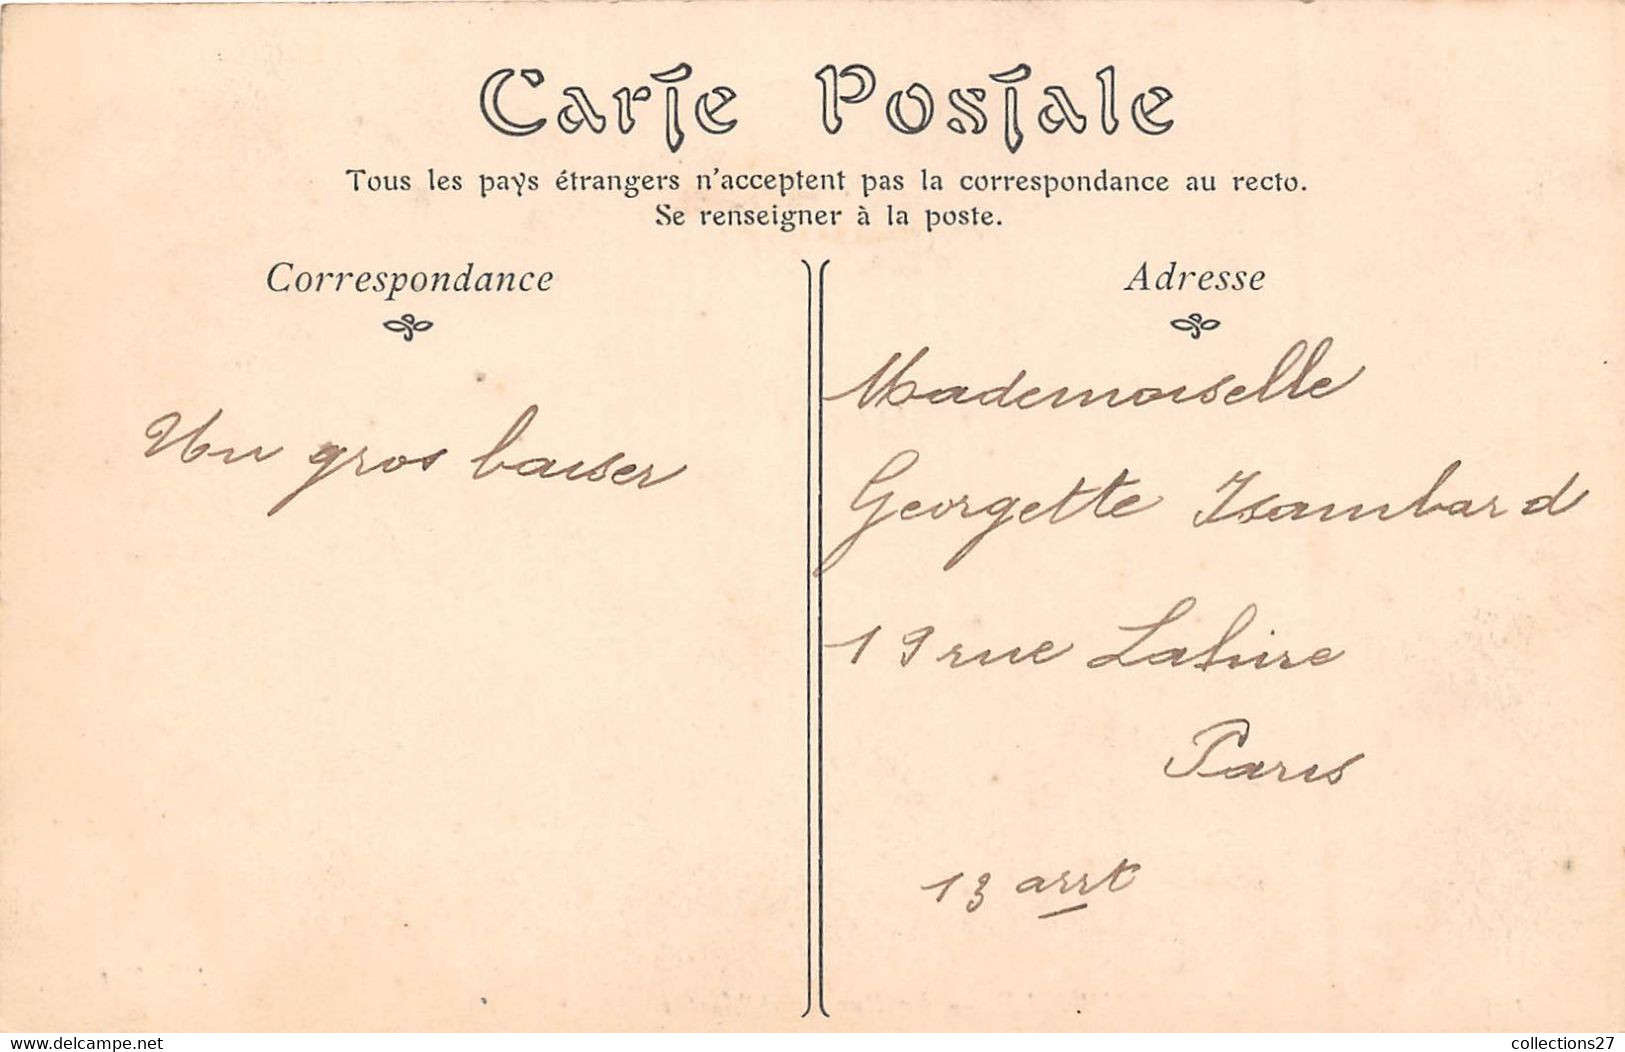 Carte Postale
Tous les pays étrangers n'acceptent pas la correspondance au recto.
Se renseigner à la poste.
Correspondance
Adresse
Un gros baiser
Mademoiselle
Georgette Isambard
19 rue Lahire
Paris
13 arrt
www.delcampe.net
collections27